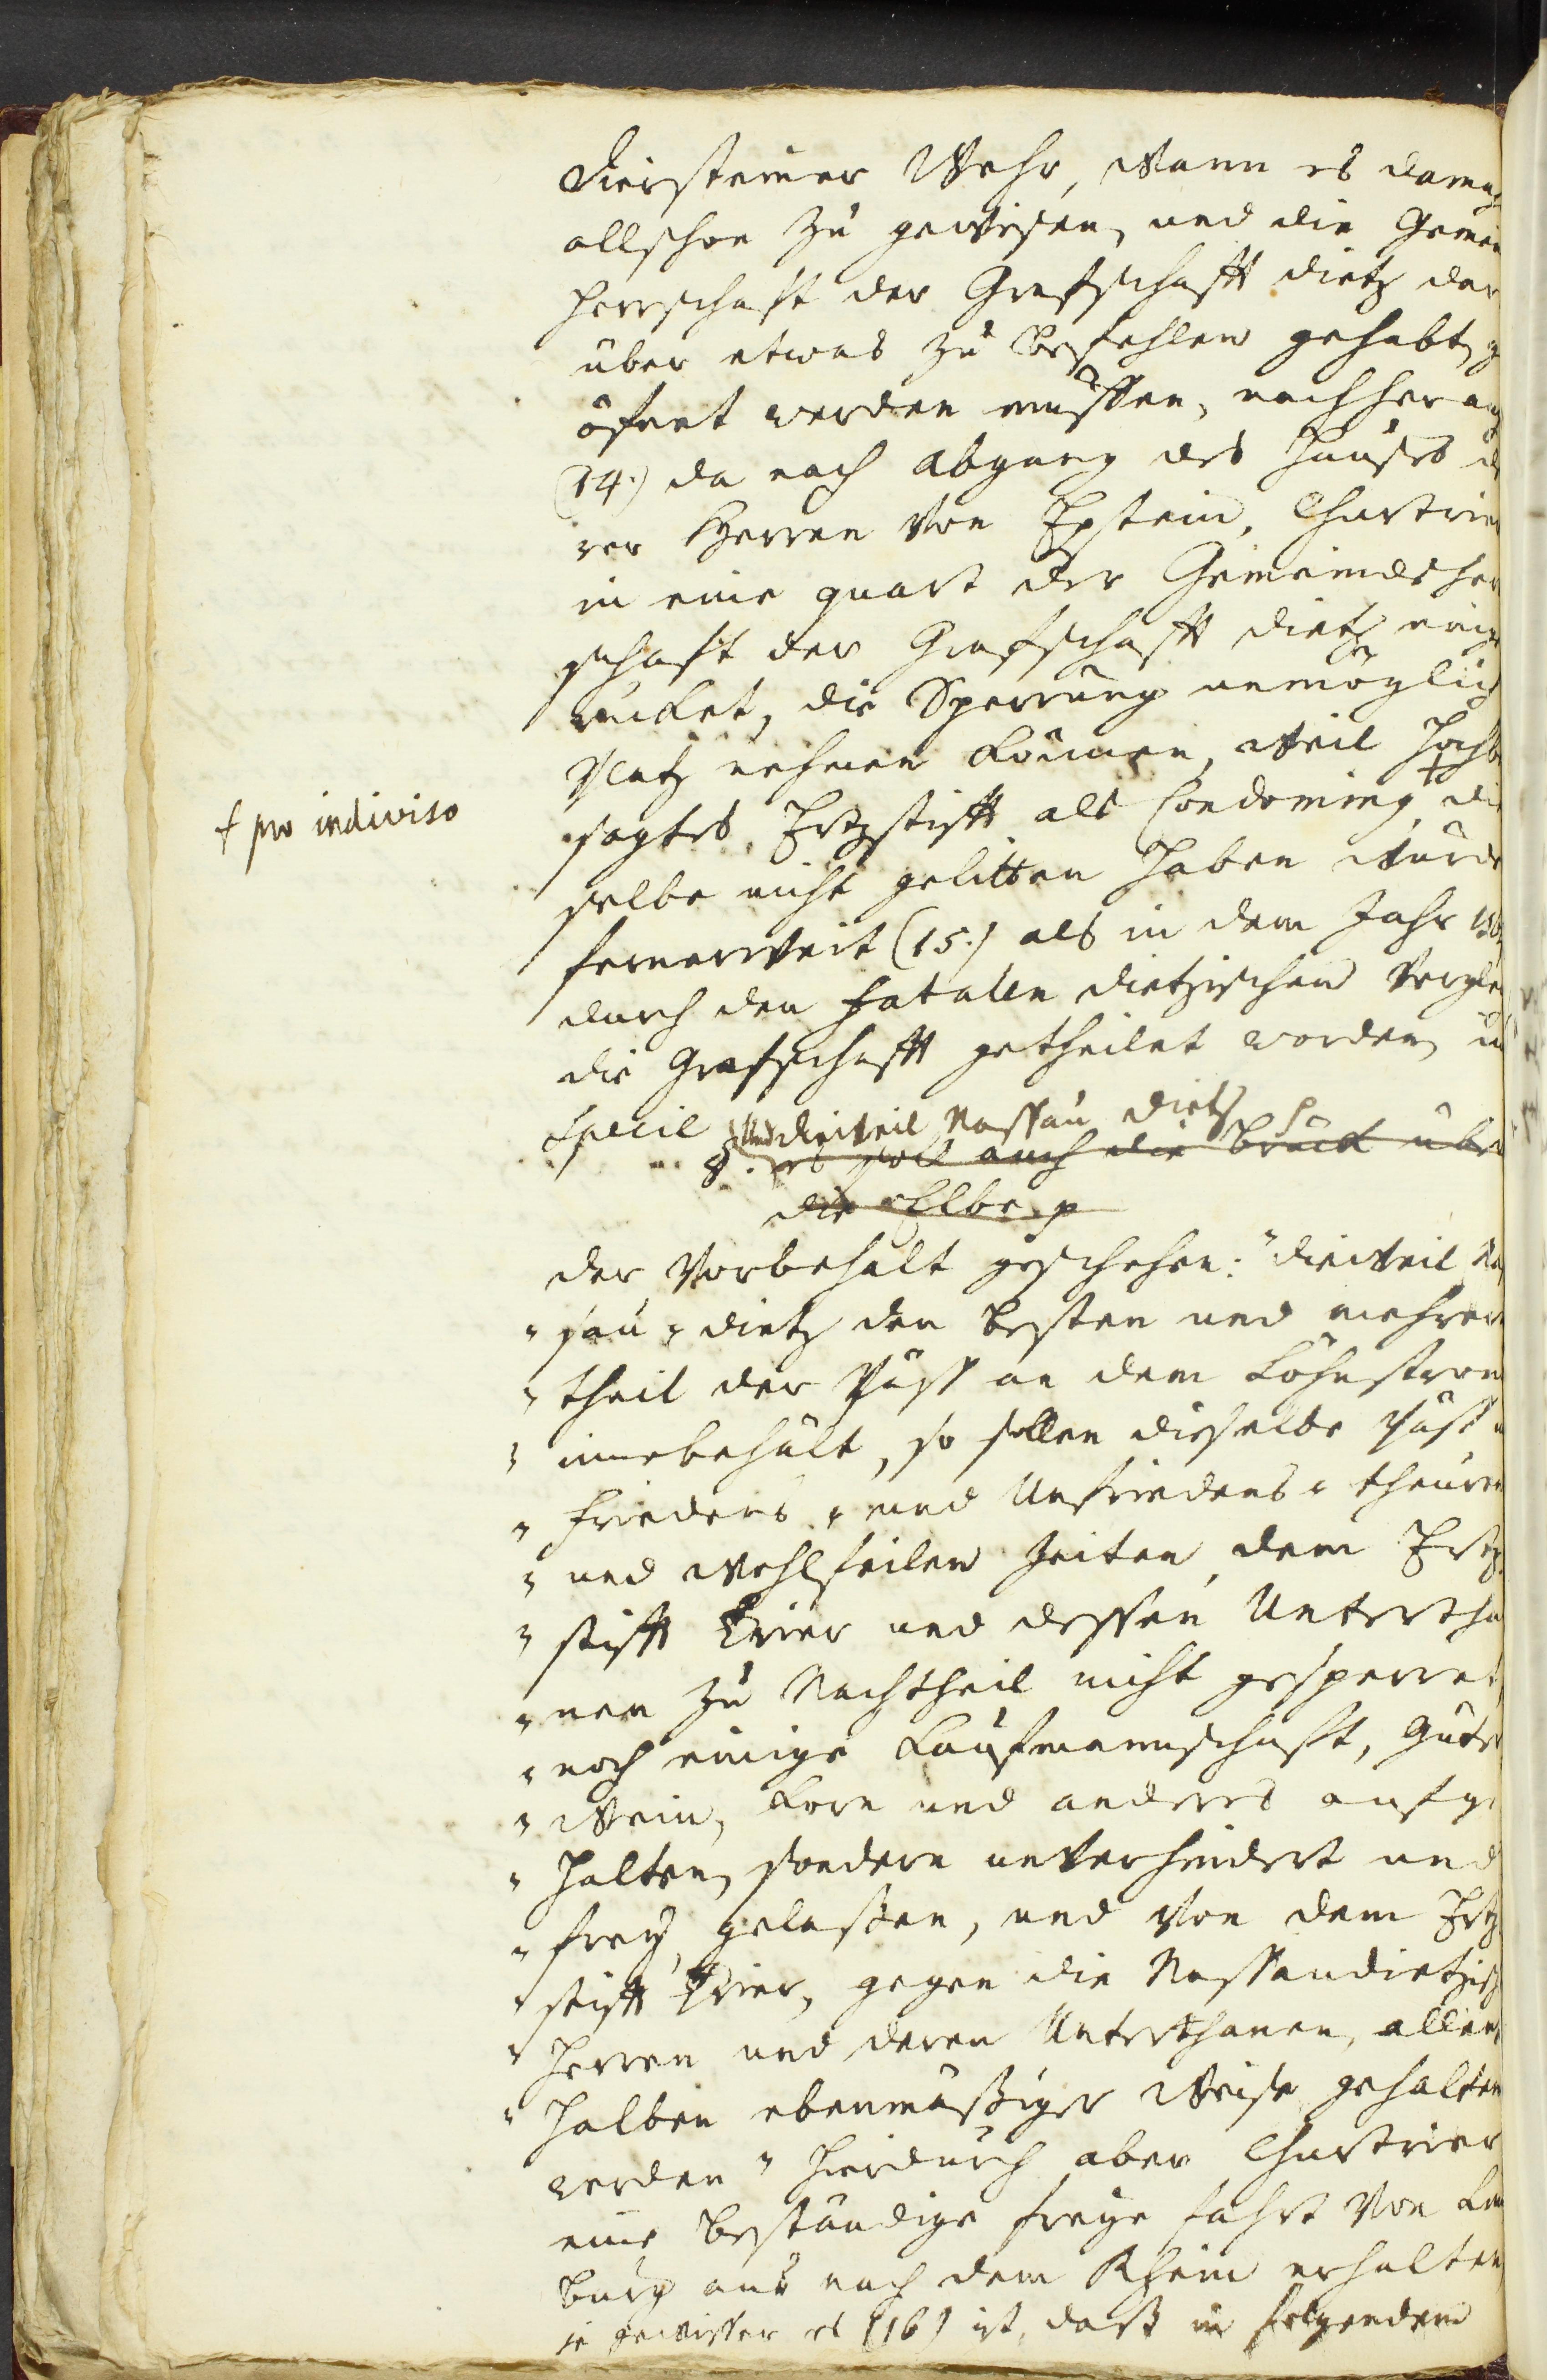 Diersteiner Wehr, wann es damah
allschon zu gewesen, und die Gemein
herrschaft der Grafschafft Dietz dar
über etwas zu befehlen gehabt, ge
öfnet werden müssen, nachher auch
(14.) da nach Abgang des Hauses de
rer Herren von Epstein, Churtrier
in eine quart der Gemeindsherr
schaft der Grafschafft Dietz einge
rucket, die Sperrung unmöglich
Platz nehmen können, weil hochbe
sagtes Ertzstifft als Condominus † die
† pro indiviso
selbe nicht gelitten haben würde
fernerweit (15.) als in dem Jahr 156
durch den fatalen Dietzischen Vergleich
die Grafschafft getheilet worden, in
Specie und dieweil Nassau Dietz
8. es soll auch die Brück über
die Elbe p
der Vorbehalt geschehen: "dieweil Nas
" sau-Dietz den besten und mehren
" theil der Päss an dem Löhnstrom
" innebehält, so sollen dieselbe Päss in
" Friedens- und Unfriedens- theuren
" und wohlfeilen Zeiten, dem Ertz
" stifft Trier und dessen Untertha
" nen zu Nachtheil nicht gesperret,
" noch einige Kaufmannschaft, Güter
" Wein, Korn und anderes aufge
" halten, sondern unverhindert und
" frey gelaßen, und von dem Ertz
" stifft Trier, gegen die Nassaudietzisch
" Herren und deren Unterthanen, allent
" halben ebenmäßiger Weise gehalten
werden " hierdurch aber Churtrier
eine beständige freye Fahrt von Lim
burg aus nach dem Rhein erhalten
je gewisser es (16) ist, daß in folgendem